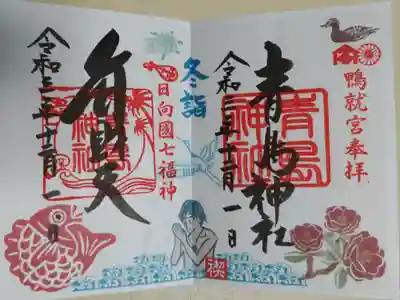 鴨就宮奉拝
青島神社
青島
神社
令和三年十二月一日
冬詣
日向國七福神
弁財天
青島
神社
令和三年十二月一日